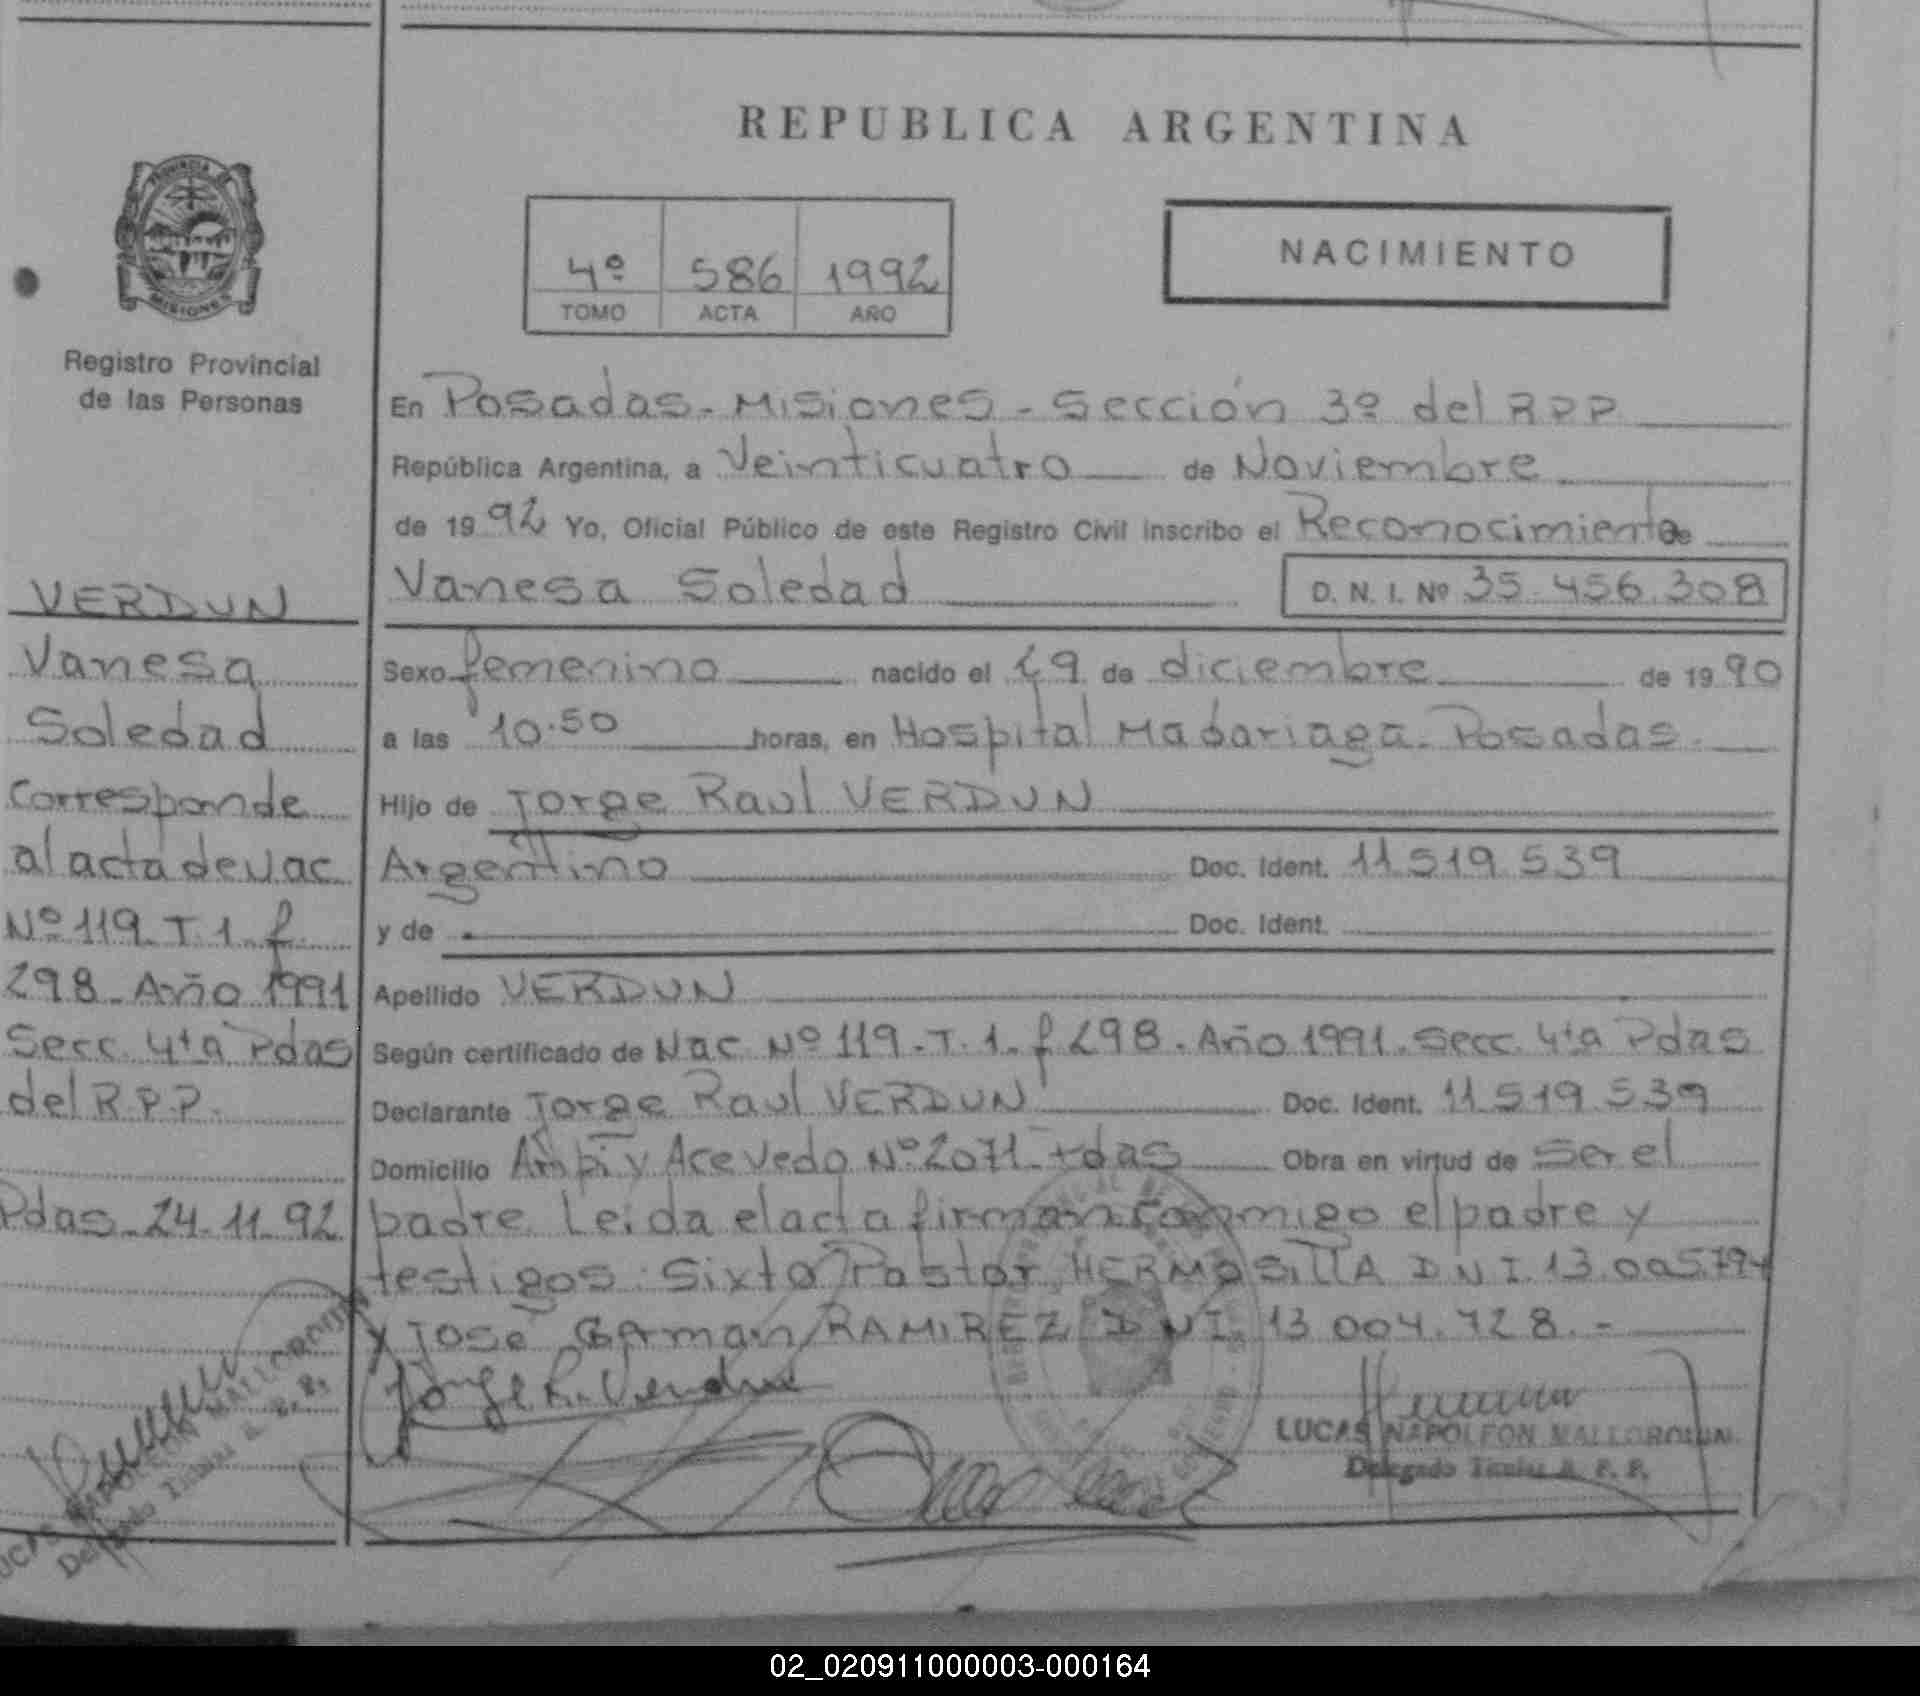 REPUBLICA ARGENTINA
PROVINCIA DE
MISIONES
Registro Provincial
de las Personas
4º 586 1992
TOMO ACTA AÑO
NACIMIENTO
En Posadas - Misiones - Sección 3º del RPP
República Argentina, a Veinticuatro de Noviembre
de 1992 Yo, Oficial Público de este Registro Civil inscribo el Reconocimiento de
Vanesa Soledad D. N. I. Nº 35.456.308
Sexo femenino nacido el 29 de diciembre de 1990
a las 10.50 horas, en Hospital Madariaga. Posadas.
Hijo de Jorge Raul VERDUN
Argentino Doc. Ident. 11.519.539
y de Doc. Ident.
Apellido VERDUN
Según certificado de Nac Nº 119. T. 1. f 298. Año 1991. Secc. 4ta Pdas
Declarante Jorge Raul VERDUN Doc. Ident. 11.519.539
Domicilio y Acevedo Nº 2071 Pdas Obra en virtud de Ser el
padre. Leida el acta firman conmigo el padre y
testigos: Sixto Pastor HERMOSILLA DNI. 13.005.794
y Jose German RAMIREZ DNI. 13.004.728.-
Jorge R. Verdun
LUCAS NAPOLEON MALLORQUIN
Delegado Titular R. P. P.
VERDUN
Vanesa
Soledad
Corresponde
al acta de Nac
Nº 119. T. 1. f
298. Año 1991
Secc. 4ta Pdas
del R.P.P.
Pdas. 24.11.92
LUCAS NAPOLEON MALLORQUIN
Delegado Titular R. P. P.
02_020911000003-000164